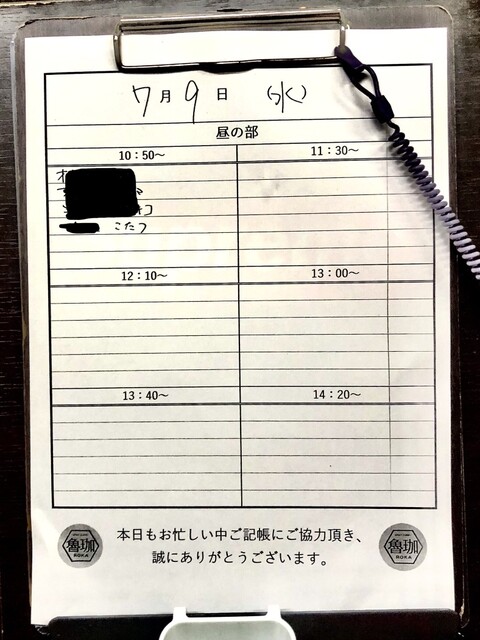 7月9日 (水)
昼の部
10：50～
11：30～
こたつ
12：10～
13：00～
13：40～
14：20～
本日もお忙しい中ご記帳にご協力頂き、
誠にありがとうございます。
魯珈
ROKA
魯珈
ROKA